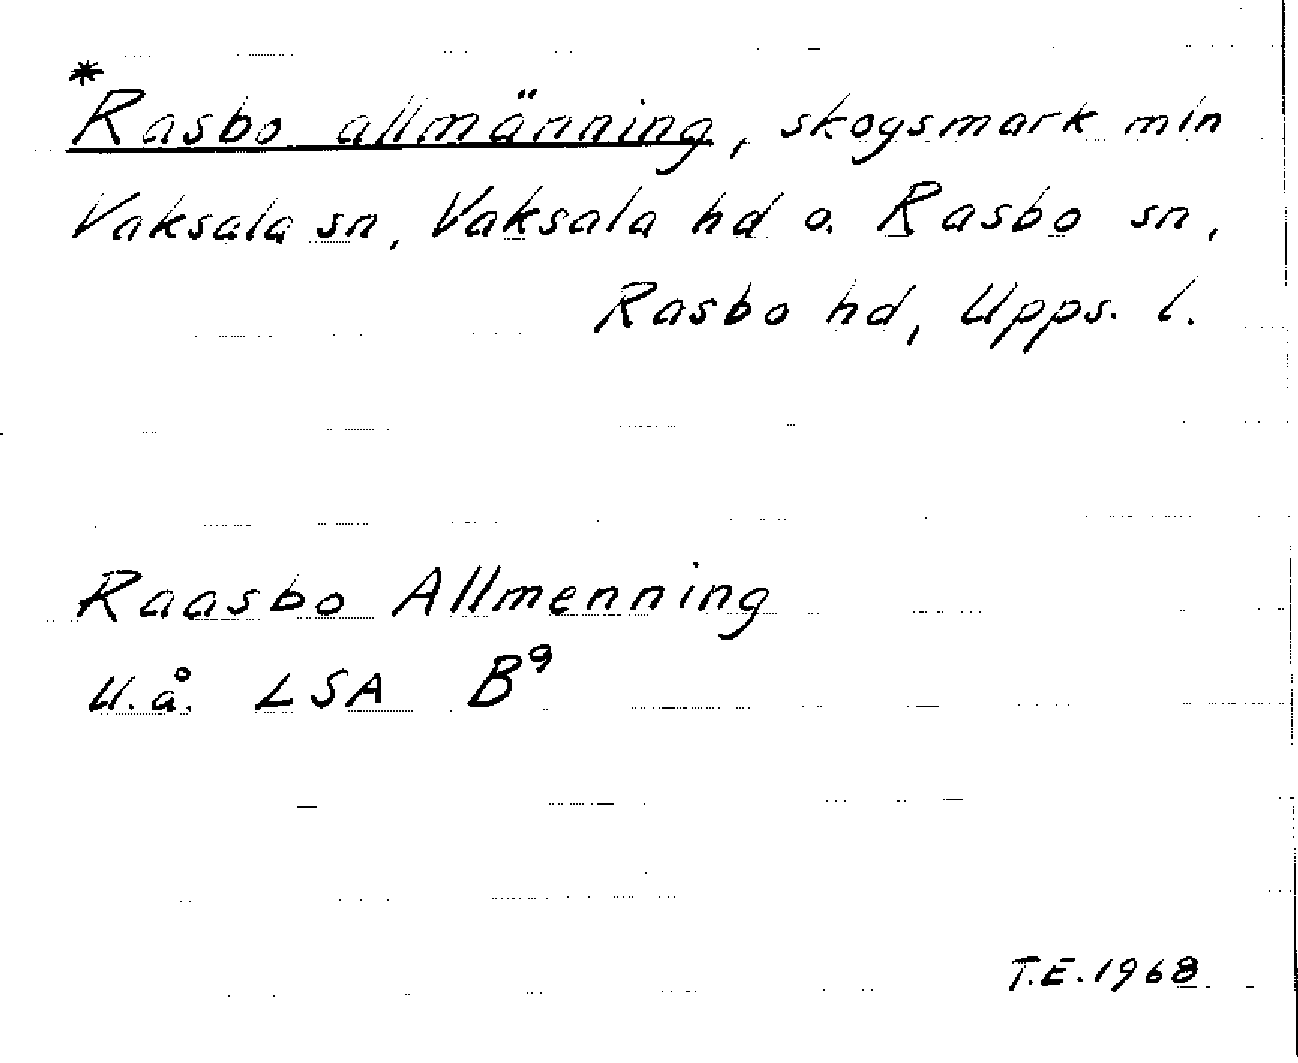 *
Rasbo allmänning, skogsmark mln
Vaksala sn, Vaksala hd o. Rasbo sn,
Rasbo hd, Upps. l.
Raasbo Allmenning
u.å. LSA B⁹
T.E. 1968